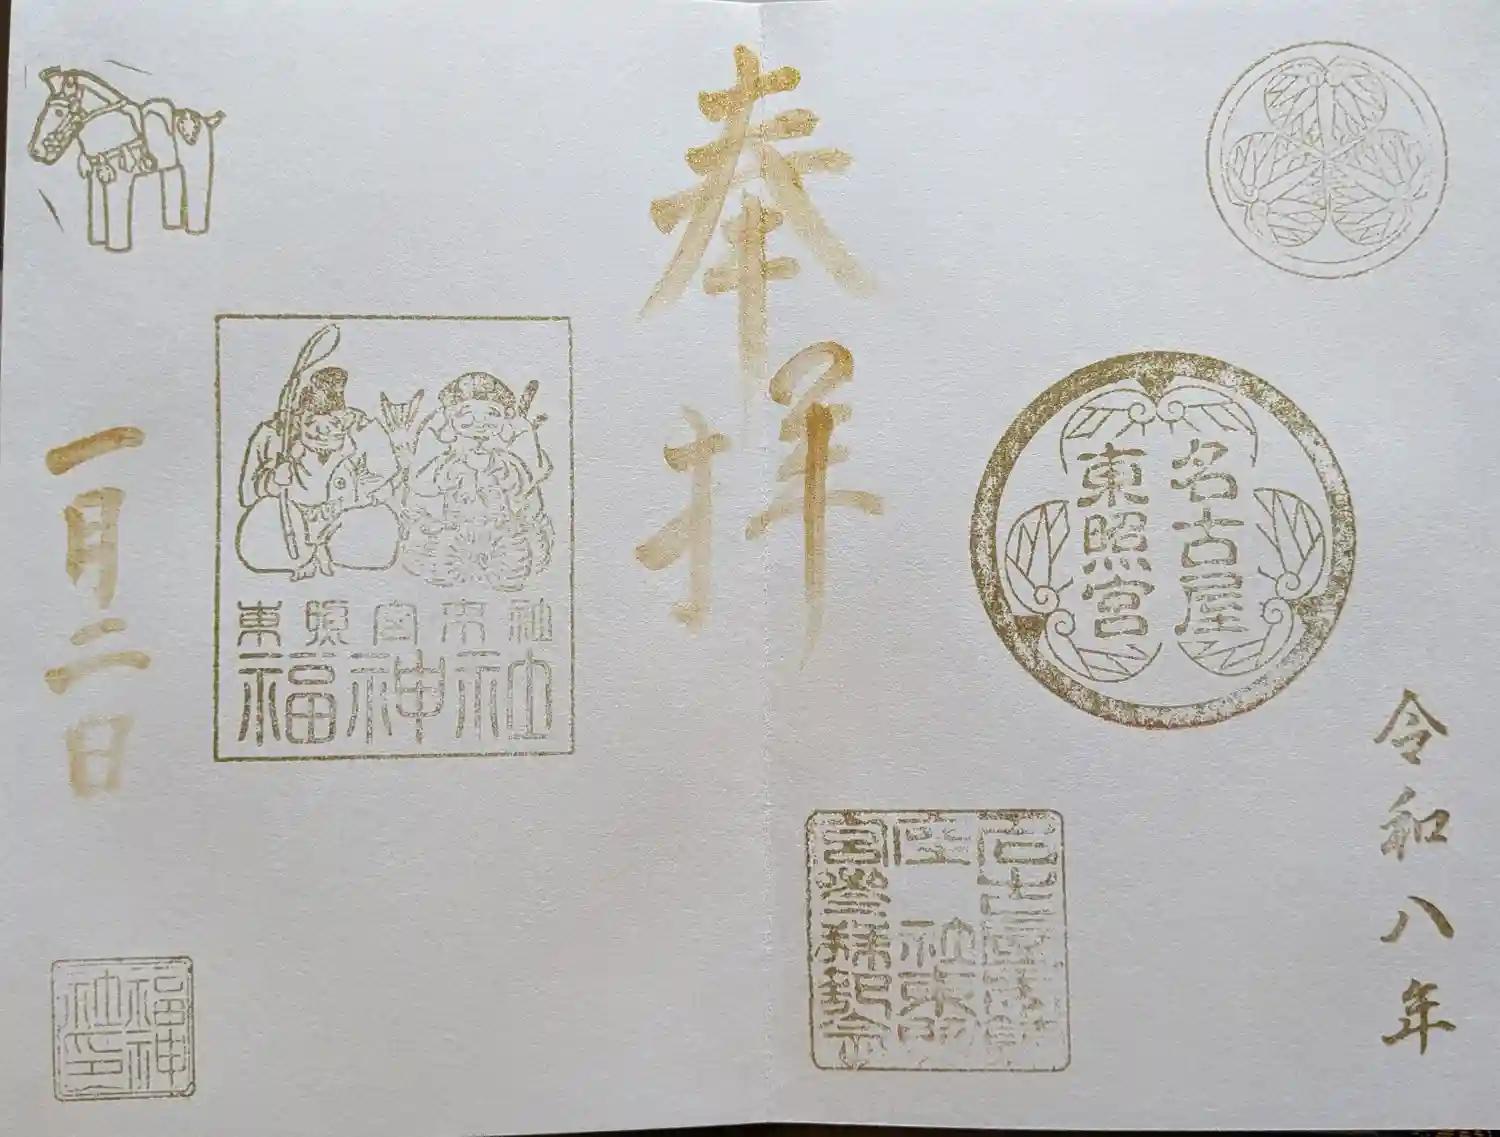 奉拝
名古屋
東照宮
令和八年
東照宮末社
福神社
一月二日
福神
社印